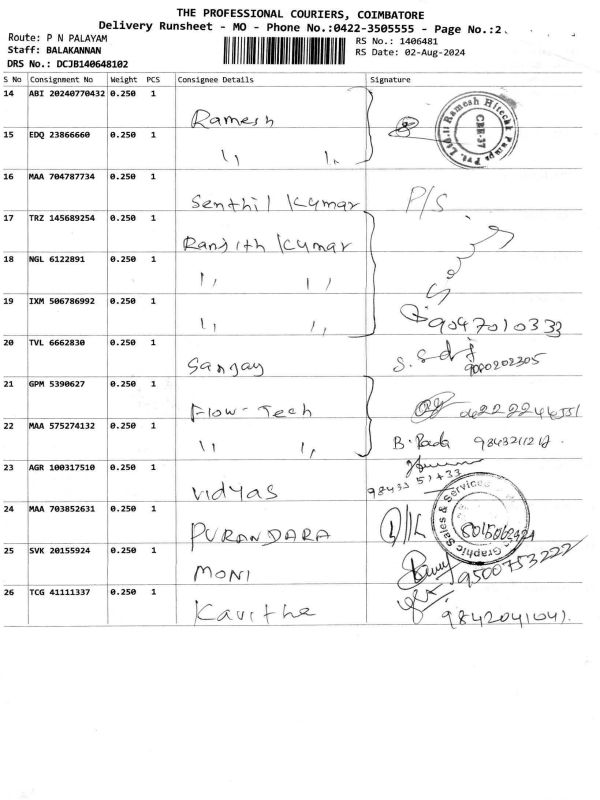 THE PROFESSIONAL COURIERS, COIMBATORE
Delivery Runsheet - MO - Phone No.:0422-3505555 - Page No.:2
Route: P N PALAYAM
RS No.: 1406481
Staff: BALAKANNAN
RS Date: 02-Aug-2024
DRS No.: DCJB140648102
S No Consignment No Weight PCS Consignee Details Signature
14 ABI 20240770432 0.250 1 Ramesh
Ramesh Hitechk Pumps Pvt. Ltd. CBE-37
15 EDQ 23866660 0.250 1 ,, ,,
16 MAA 704787734 0.250 1 Senthil Kumar P/S
17 TRZ 145689254 0.250 1 Ranjith Kumar
18 NGL 6122891 0.250 1 ,, ,,
19 IXM 506786992 0.250 1 ,, ,, 9047010333
20 TVL 6662830 0.250 1 Sanjay 9080202305
21 GPM 5390627 0.250 1 Flow-Tech
22 MAA 575274132 0.250 1 ,, ,, B.
23 AGR 100317510 0.250 1 vidyas
Graphic Sales & Services
24 MAA 703852631 0.250 1 PURANDARA
25 SVK 20155924 0.250 1 MONI 9500753222
26 TCG 41111337 0.250 1 Kavitha 9842041041.